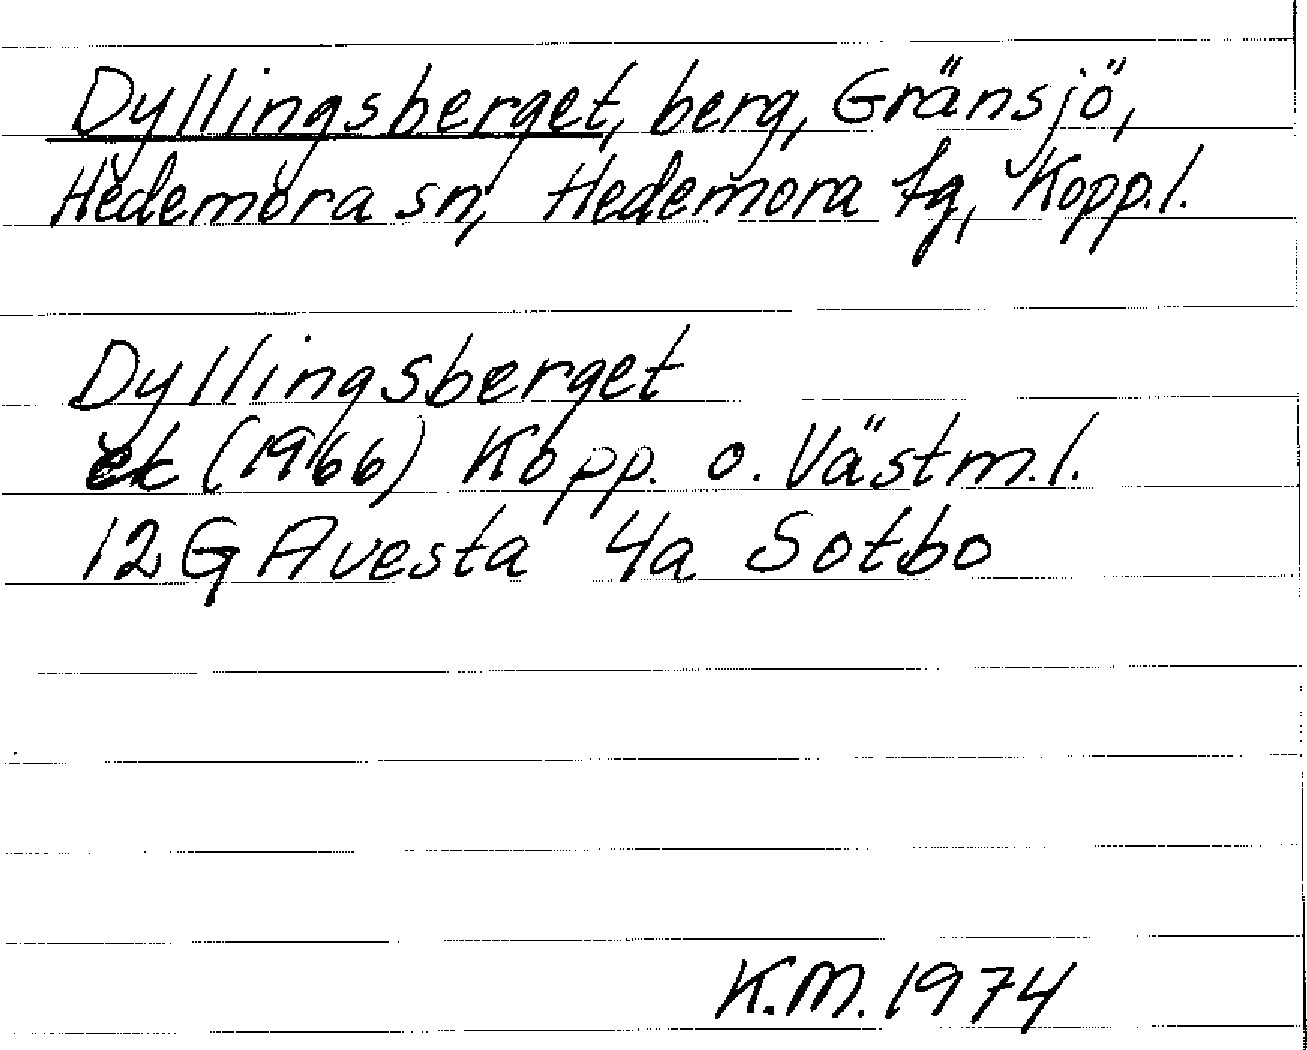 Dyllingsberget, berg, Gränsjö,
Hedemora sn, Hedemora tg, Kopp.l.
Dyllingsberget
ek (1966) Kopp. o. Västm.l.
12G Avesta 4a Sotbo
K.M. 1974